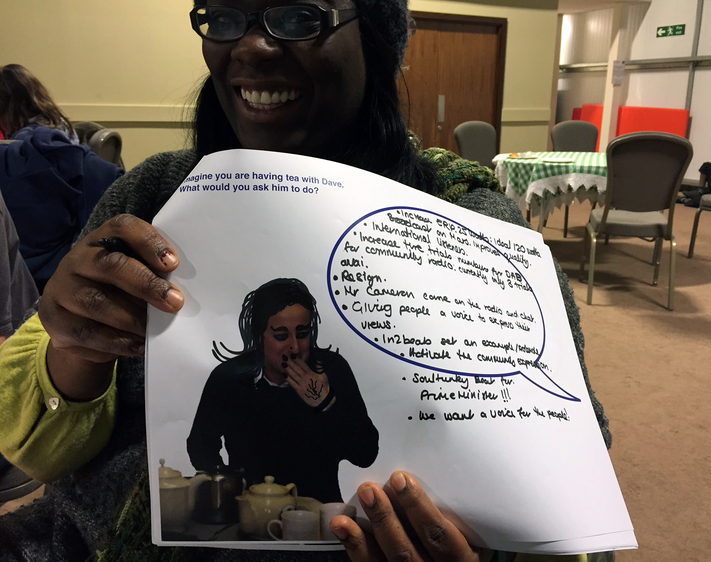 Imagine you are having tea with Dave.
What would you ask him to do?
• Increase ERP 25 watts: ideal 120 watts
Broadcast on Mono improve quality.
• International listeners.
• Increase five trials numbers for DAB
for community radio. currently only 8 trials
avai.
• Resign.
• Mr Cameron come on the radio and chat.
• Giving people a voice to express their
views.
• In2beats set an example/
• Motivate the community expression.
• Soulfunky Beat for
Prime Minister!!!
• We want a voice for the people!